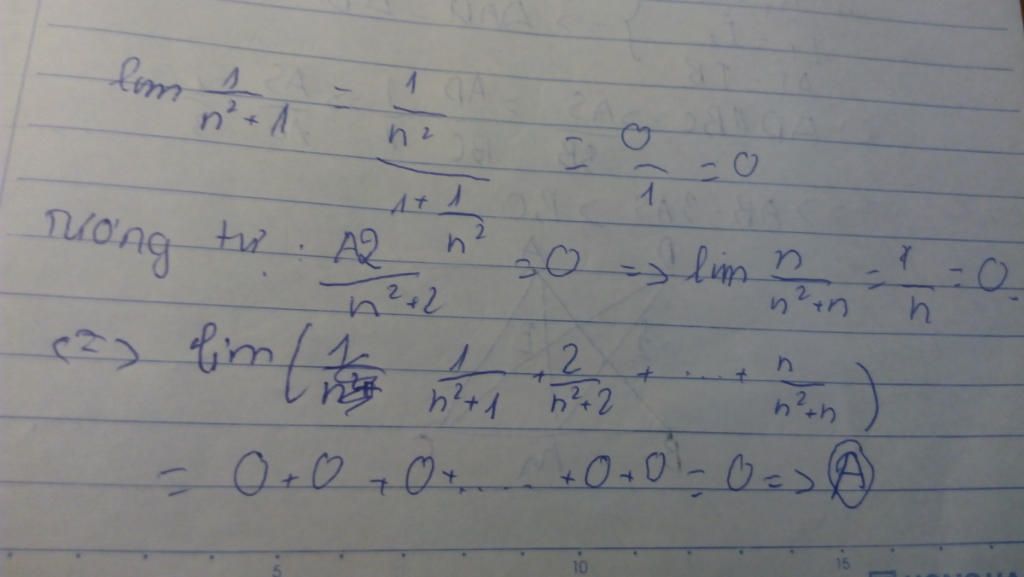 lim 1/(n² + 1) = (1/n²)/(1 + 1/n²) = 0/1 = 0
Tương tự : 2/(n²+2) = 0 => lim n/(n²+n) = 1/n = 0.
<=> lim ( 1/(n²+1) + 2/(n²+2) + ... + n/(n²+n) )
= 0 + 0 + 0 + ..... + 0 + 0 = 0 => A
5 10 15